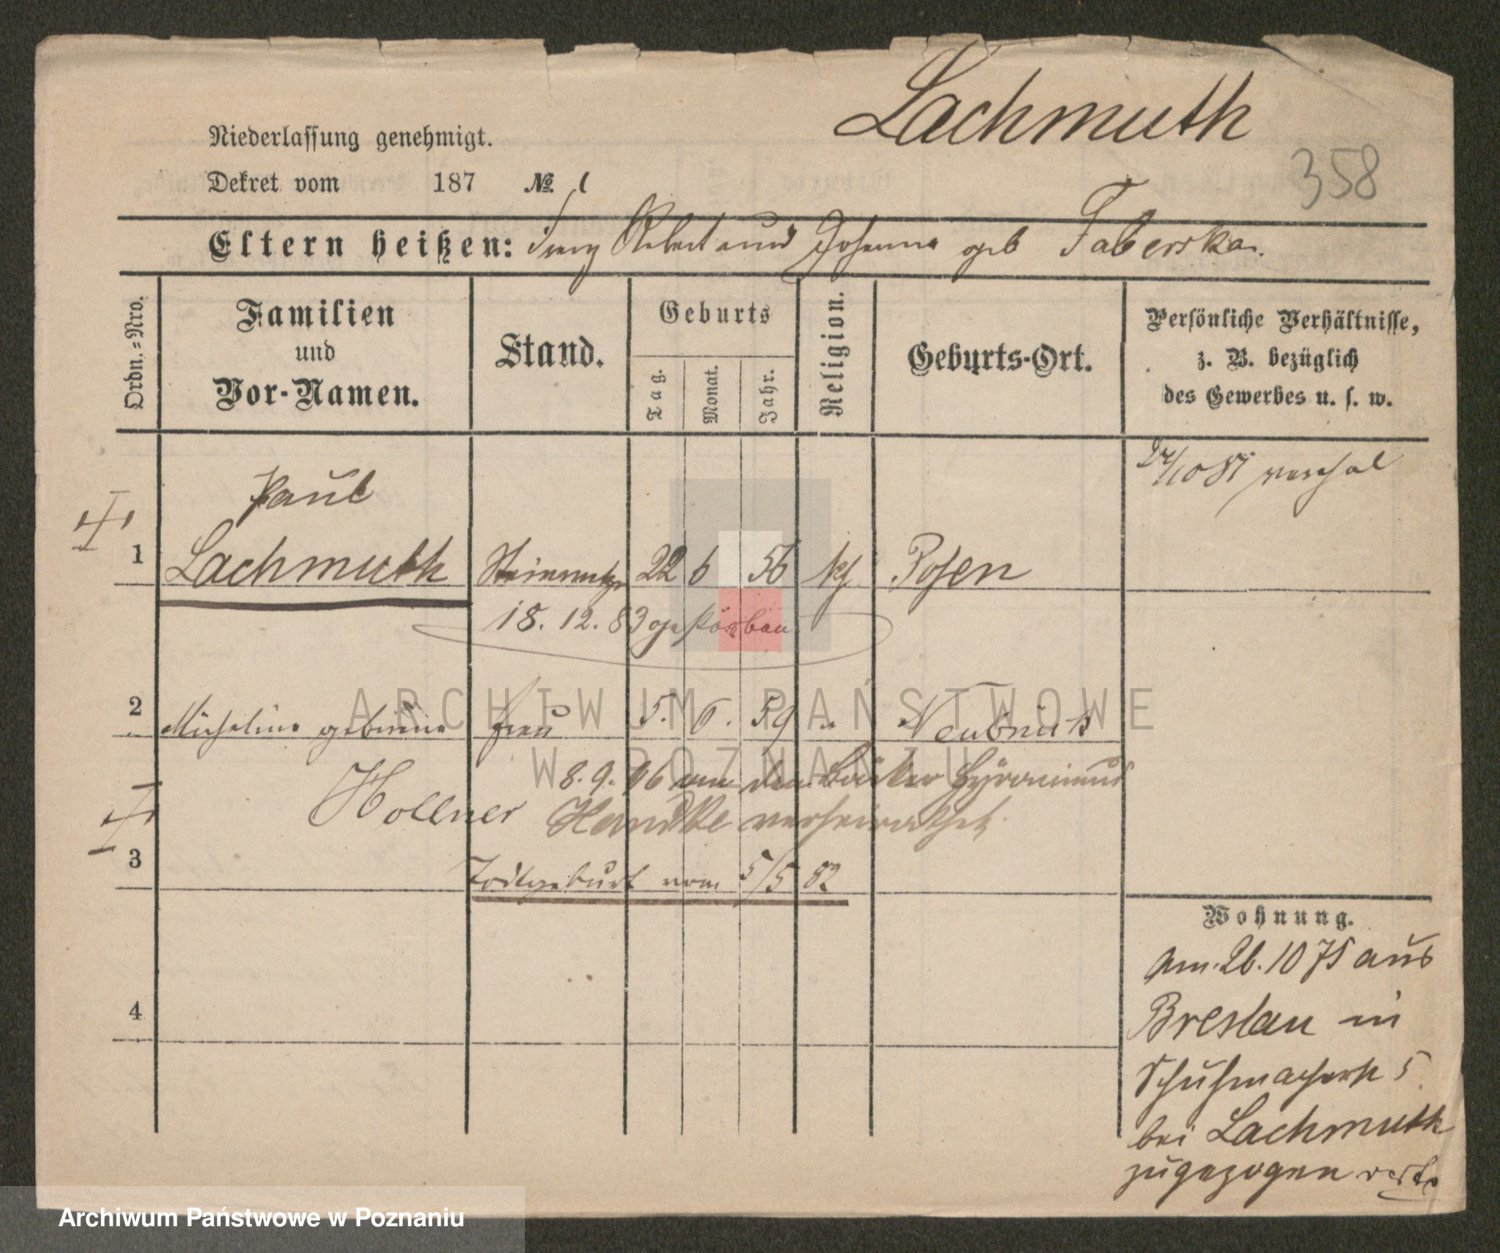 Lachmuth
358
Niederlassung genehmigt.
Dekret vom 187 № 1
Eltern heißen: Robert und Johanna geb Faberska.
Ordn.=Nro.
Familien
und
Vor-Namen.
Stand.
Geburts
Tag.
Monat.
Jahr.
Religion.
Geburts-Ort.
Persönliche Verhältnisse,
z. B. bezüglich
des Gewerbes u. s. w.
Paul
1 Lachmuth 22 6 56 Posen
18. 12. 83
2 Micheline geborene Frau 5. 6. 59 " Neubrück
Hollner
8. 9. 06 den Bäcker
Handke verheirathet
3 Todtgeburt vom 5/5 82
4
Wohnung.
Am. 26. 10 75 aus
Breslau in
Schuhmacherst 5
bei Lachmuth
zugezogen
ARCHIWUM PAŃSTWOWE
W POZNANIU
Archiwum Państwowe w Poznaniu